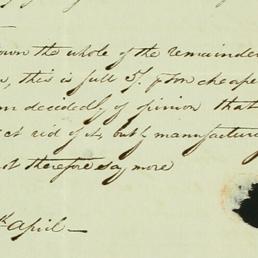 own the whole of the remainder
, this is full 5/. pton cheape
m decidedly of opinion that
ect rid of it, but manufacturing
not therefore say more
th April —